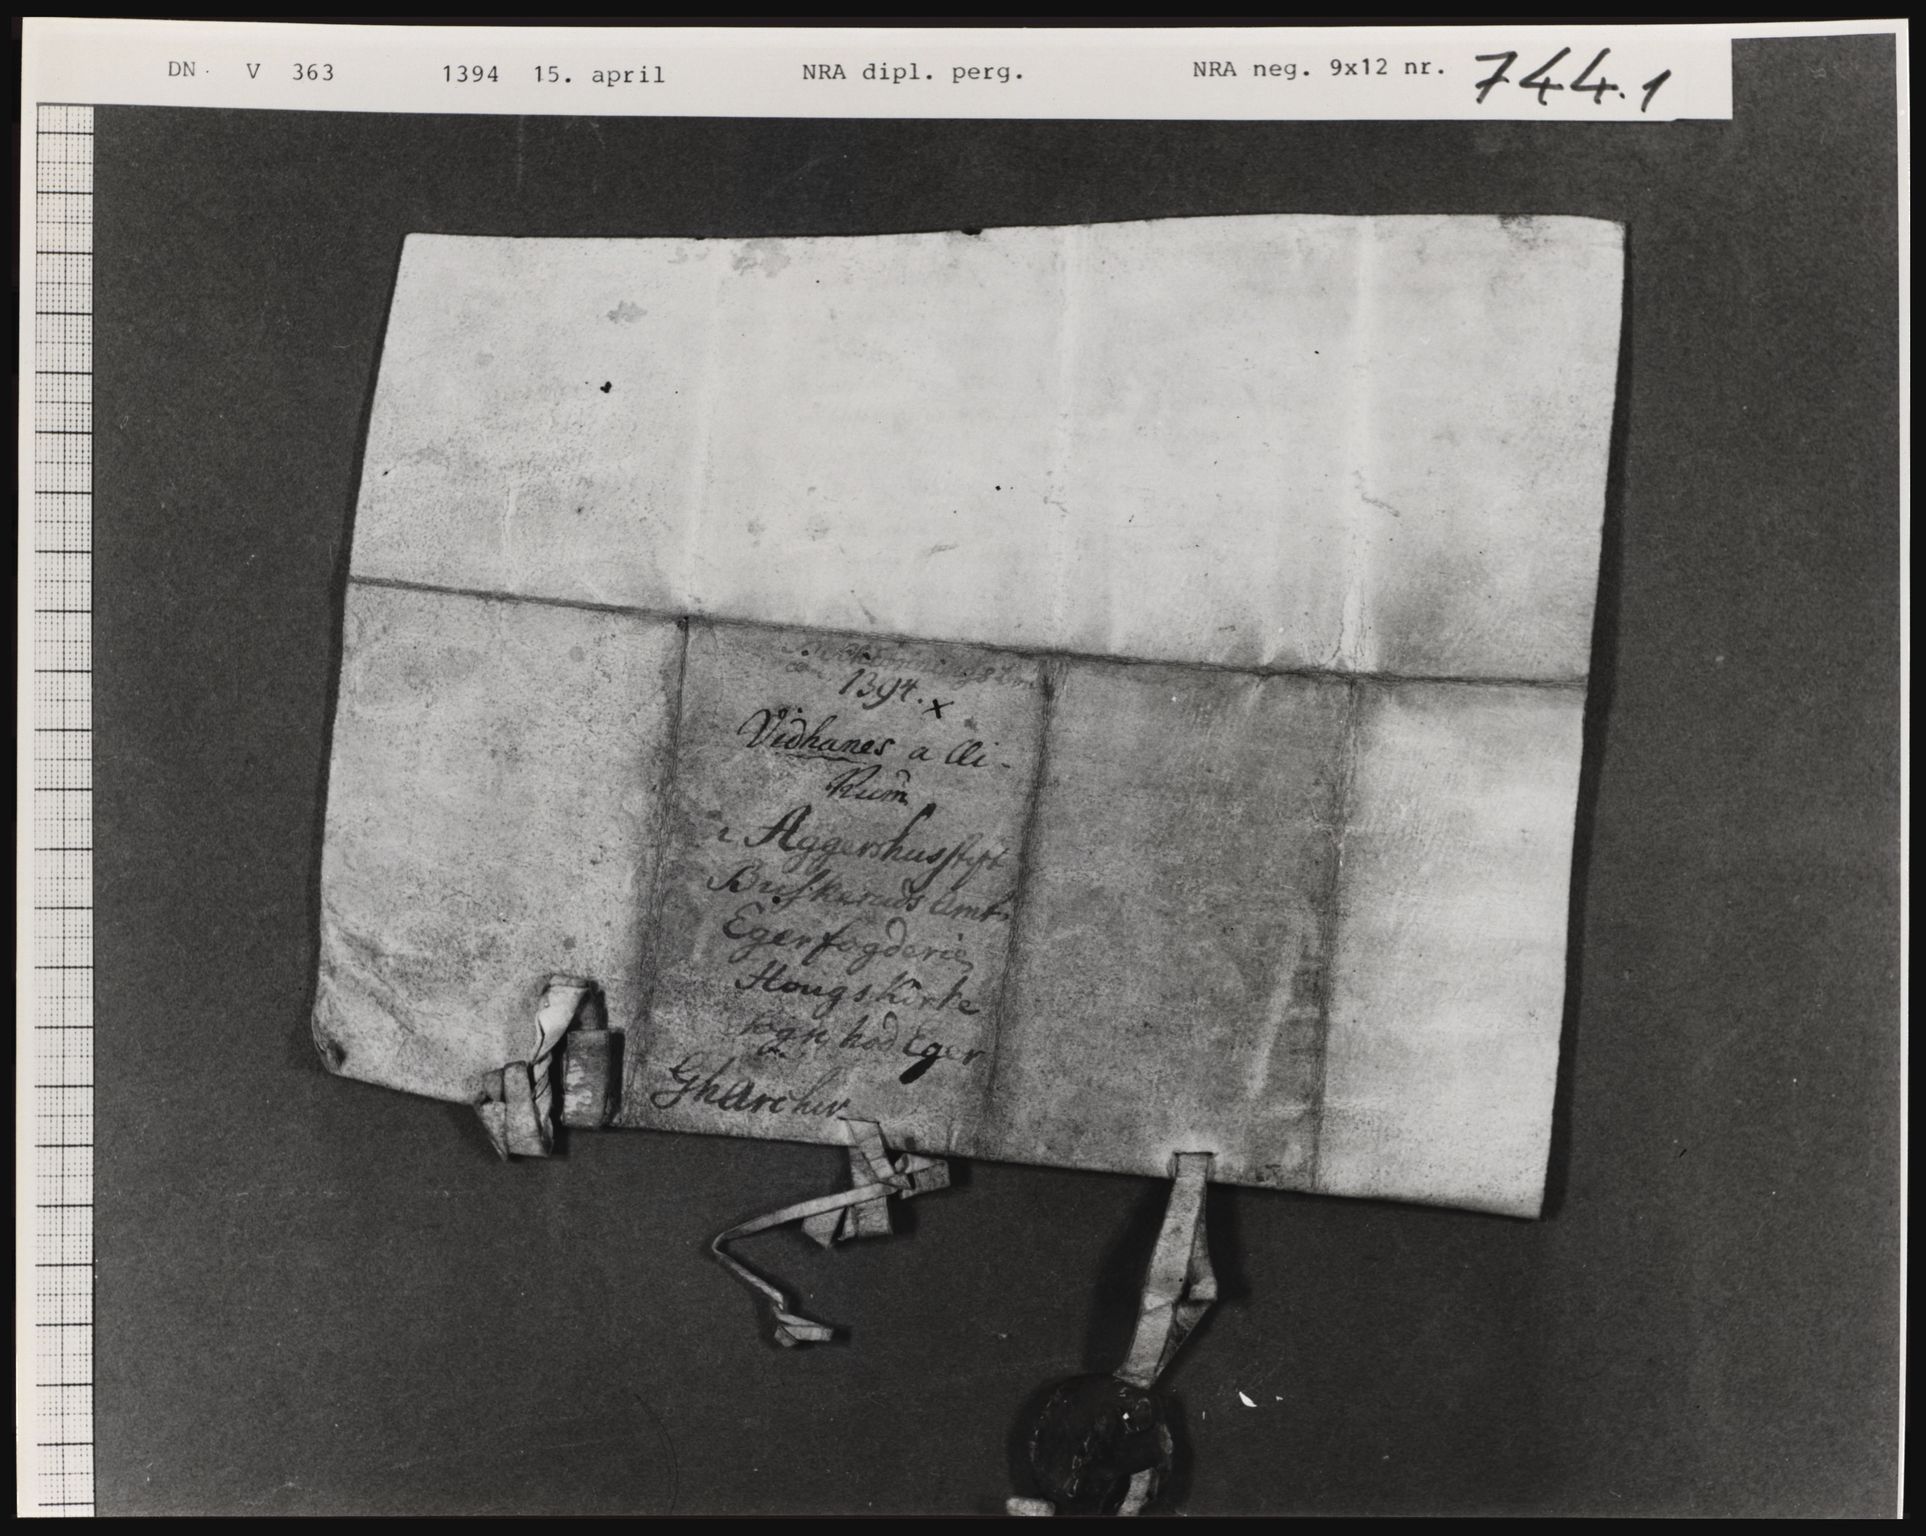 DN. V 363 1394 15. april NRA dipl. perg. NRA neg. 9x12 nr. 744.1
1394. x
Vidhanes a Œi-
Rum
i Aggershusstift
Buskeruds amt.
Eger fogderie
Hougs Kirke
sogn hod Eger
GhArchiv